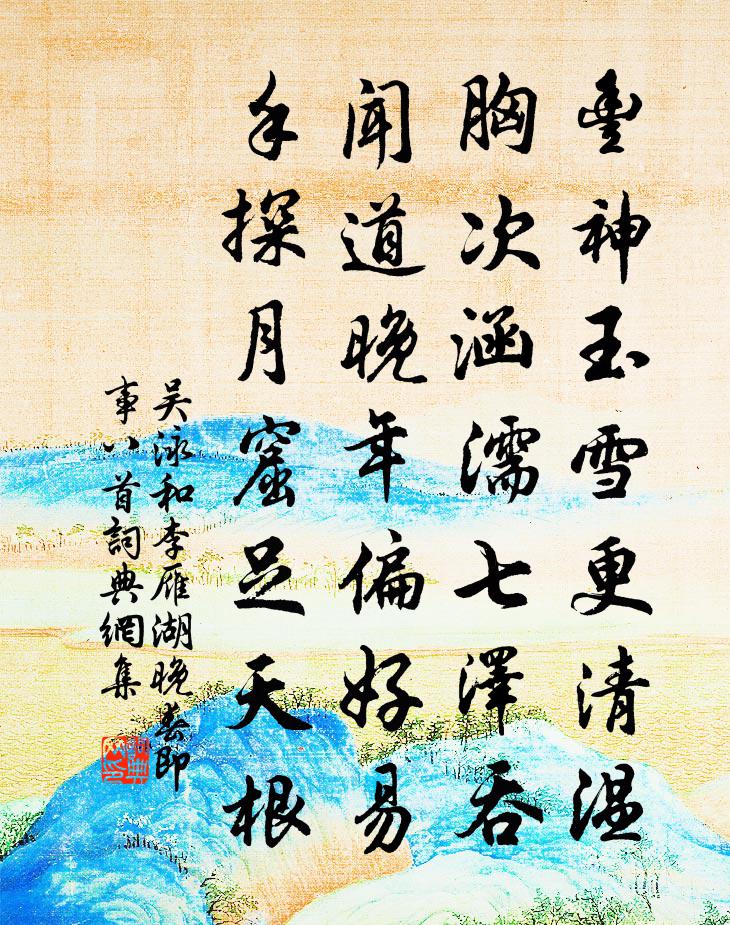 豊神玉雪更清温
胸次涵濡七澤吞
聞道晚年偏好易
手探月窟足天根
吳泳和李雁湖晚春即
事八首詞典網集